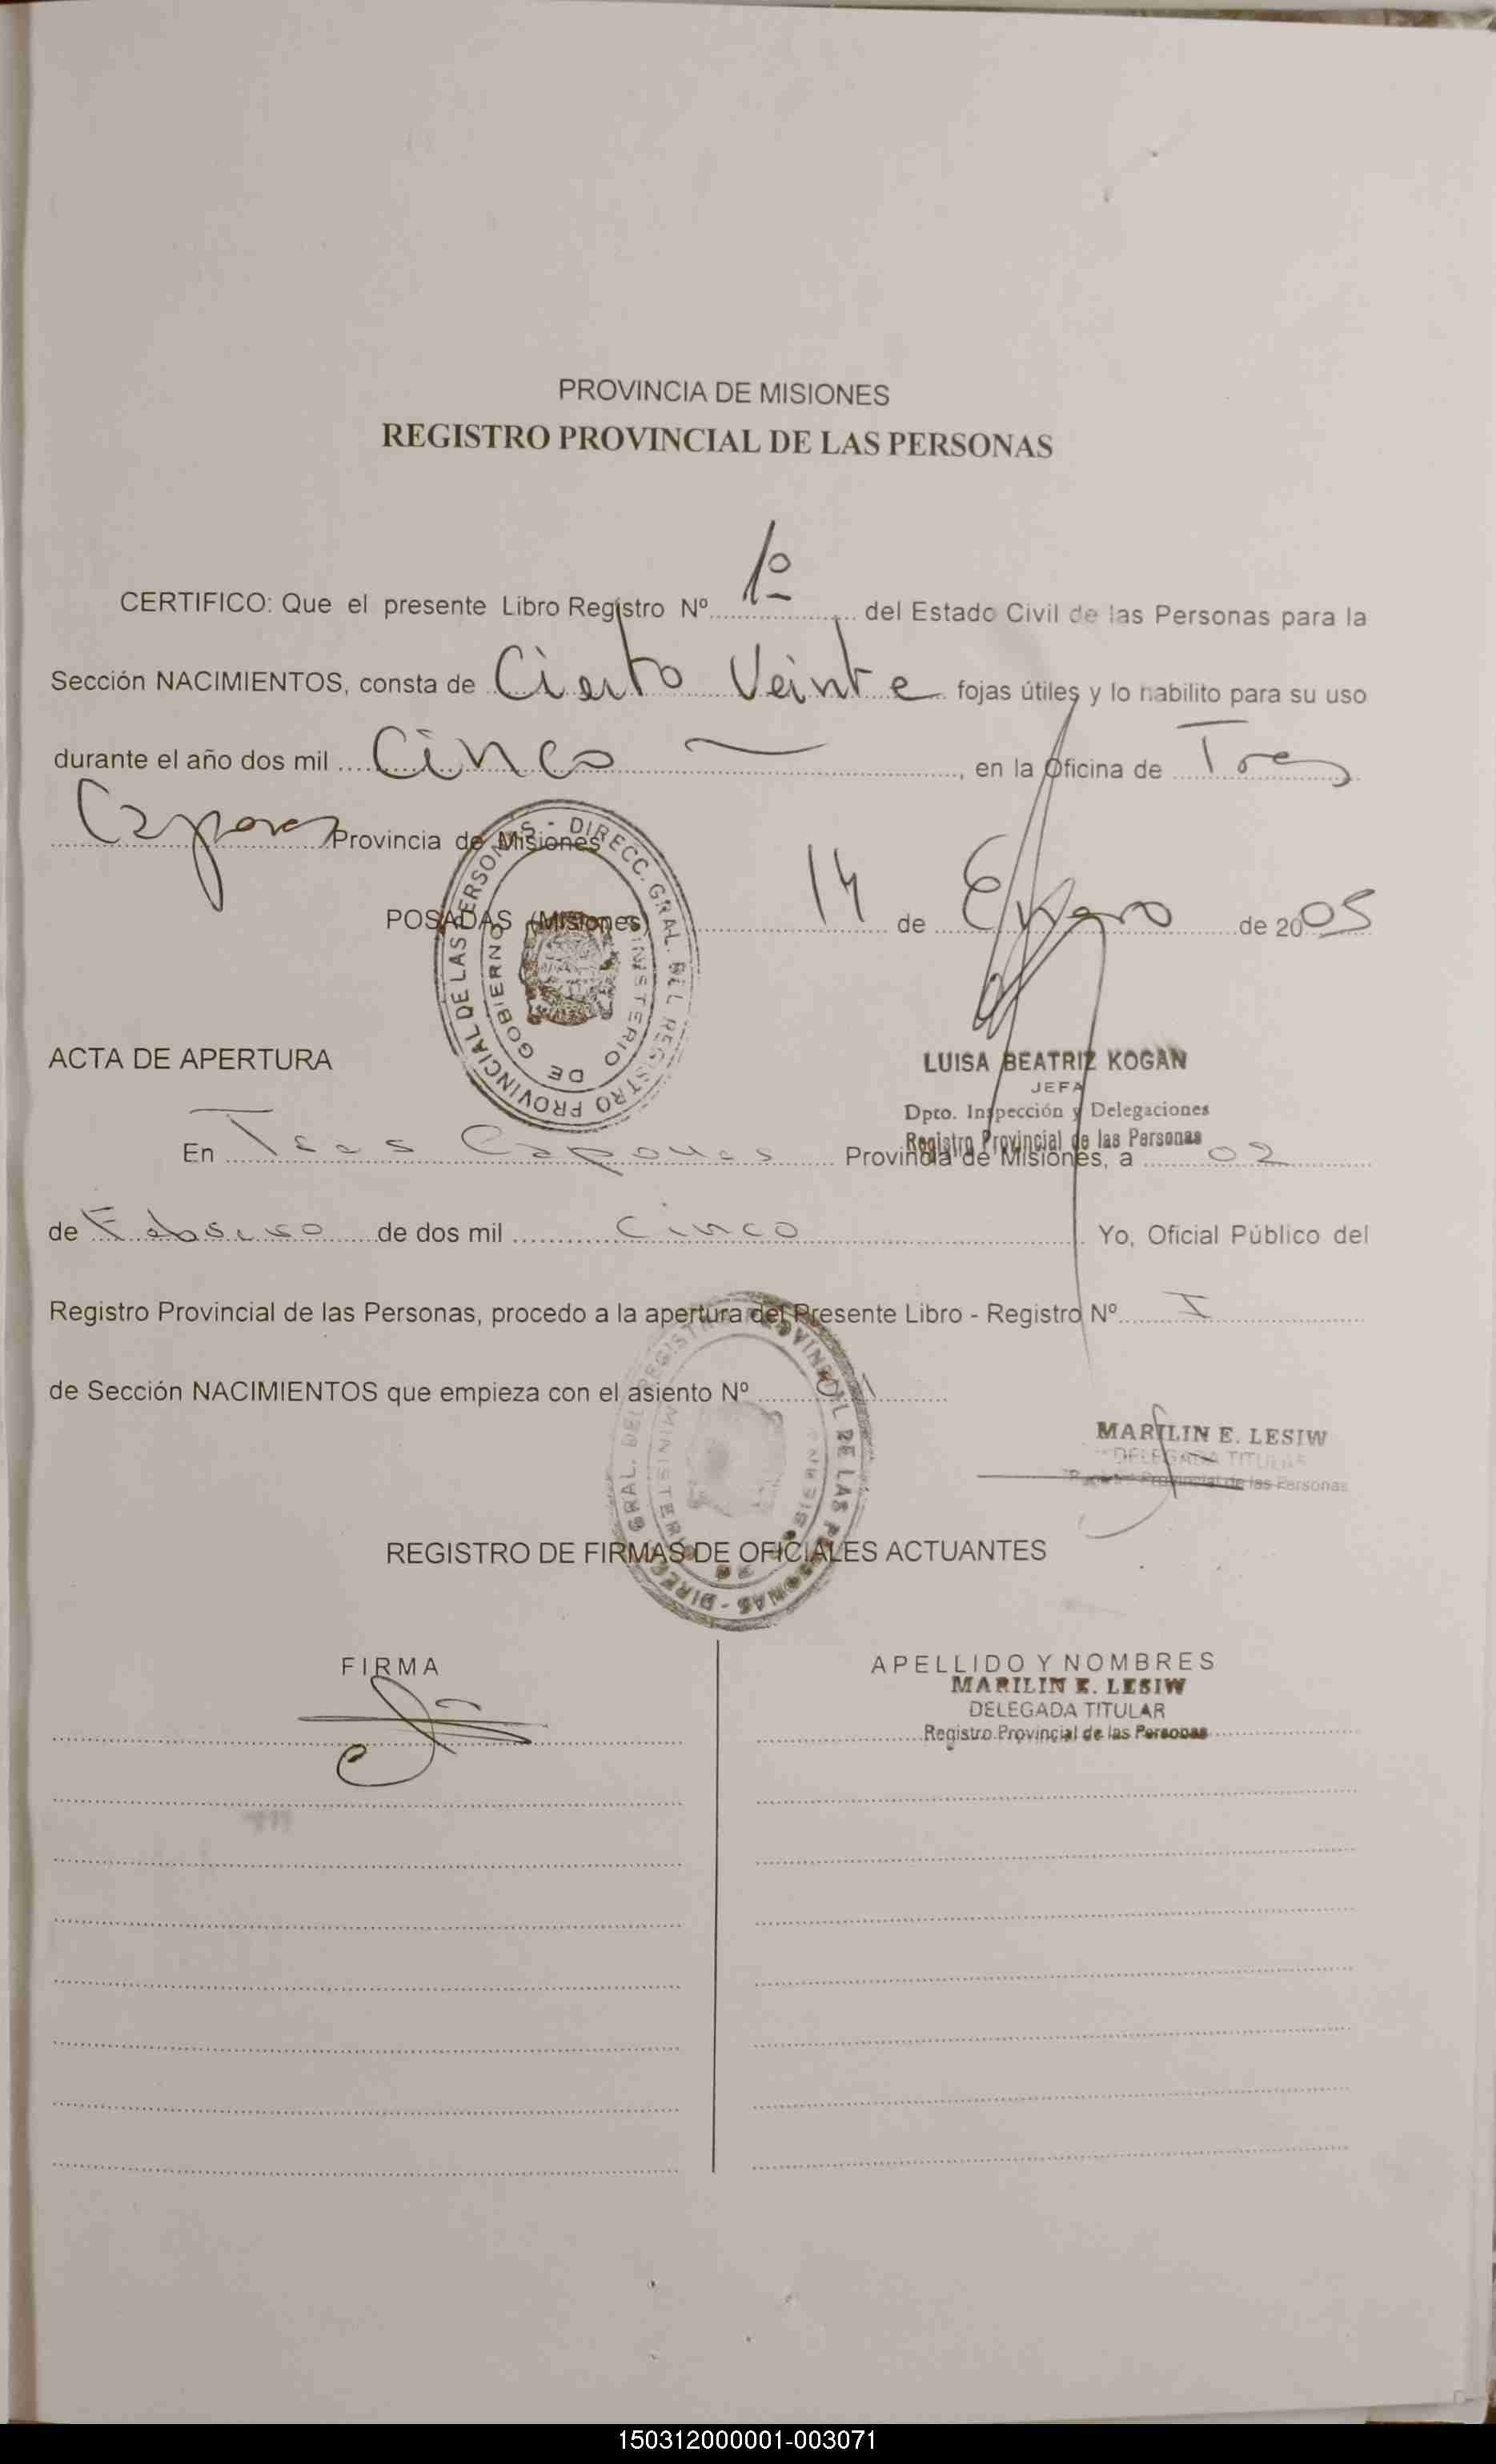 PROVINCIA DE MISIONES
REGISTRO PROVINCIAL DE LAS PERSONAS
CERTIFICO: Que el presente Libro Registro Nº 1º del Estado Civil de las Personas para la
Sección NACIMIENTOS, consta de Ciento Veinte fojas útiles y lo habilito para su uso
durante el año dos mil Cinco, en la Oficina de Tres
Capones Provincia de Misiones
POSADAS (Misiones) 14 de Enero de 2005
DIRECC. GRAL. DEL REGISTRO PROVINCIAL DE LAS PERSONAS -
MINISTERIO DE GOBIERNO
ACTA DE APERTURA
LUISA BEATRIZ KOGAN
JEFA
Dpto. Inspección y Delegaciones
Registro Provincial de las Personas
En Tres Capones Provincia de Misiones, a 02
de Febrero de dos mil Cinco Yo, Oficial Público del
Registro Provincial de las Personas, procedo a la apertura del Presente Libro - Registro Nº I
de Sección NACIMIENTOS que empieza con el asiento Nº
MARILIN E. LESIW
DELEGADA TITULAR
Registro Provincial de las Personas
DIRECC. GRAL. DEL REGISTRO PROVINCIAL DE LAS PERSONAS -
MINISTERIO DE GOBIERNO
REGISTRO DE FIRMAS DE OFICIALES ACTUANTES
FIRMA
APELLIDO Y NOMBRES
MARILIN E. LESIW
DELEGADA TITULAR
Registro Provincial de las Personas
150312000001-003071